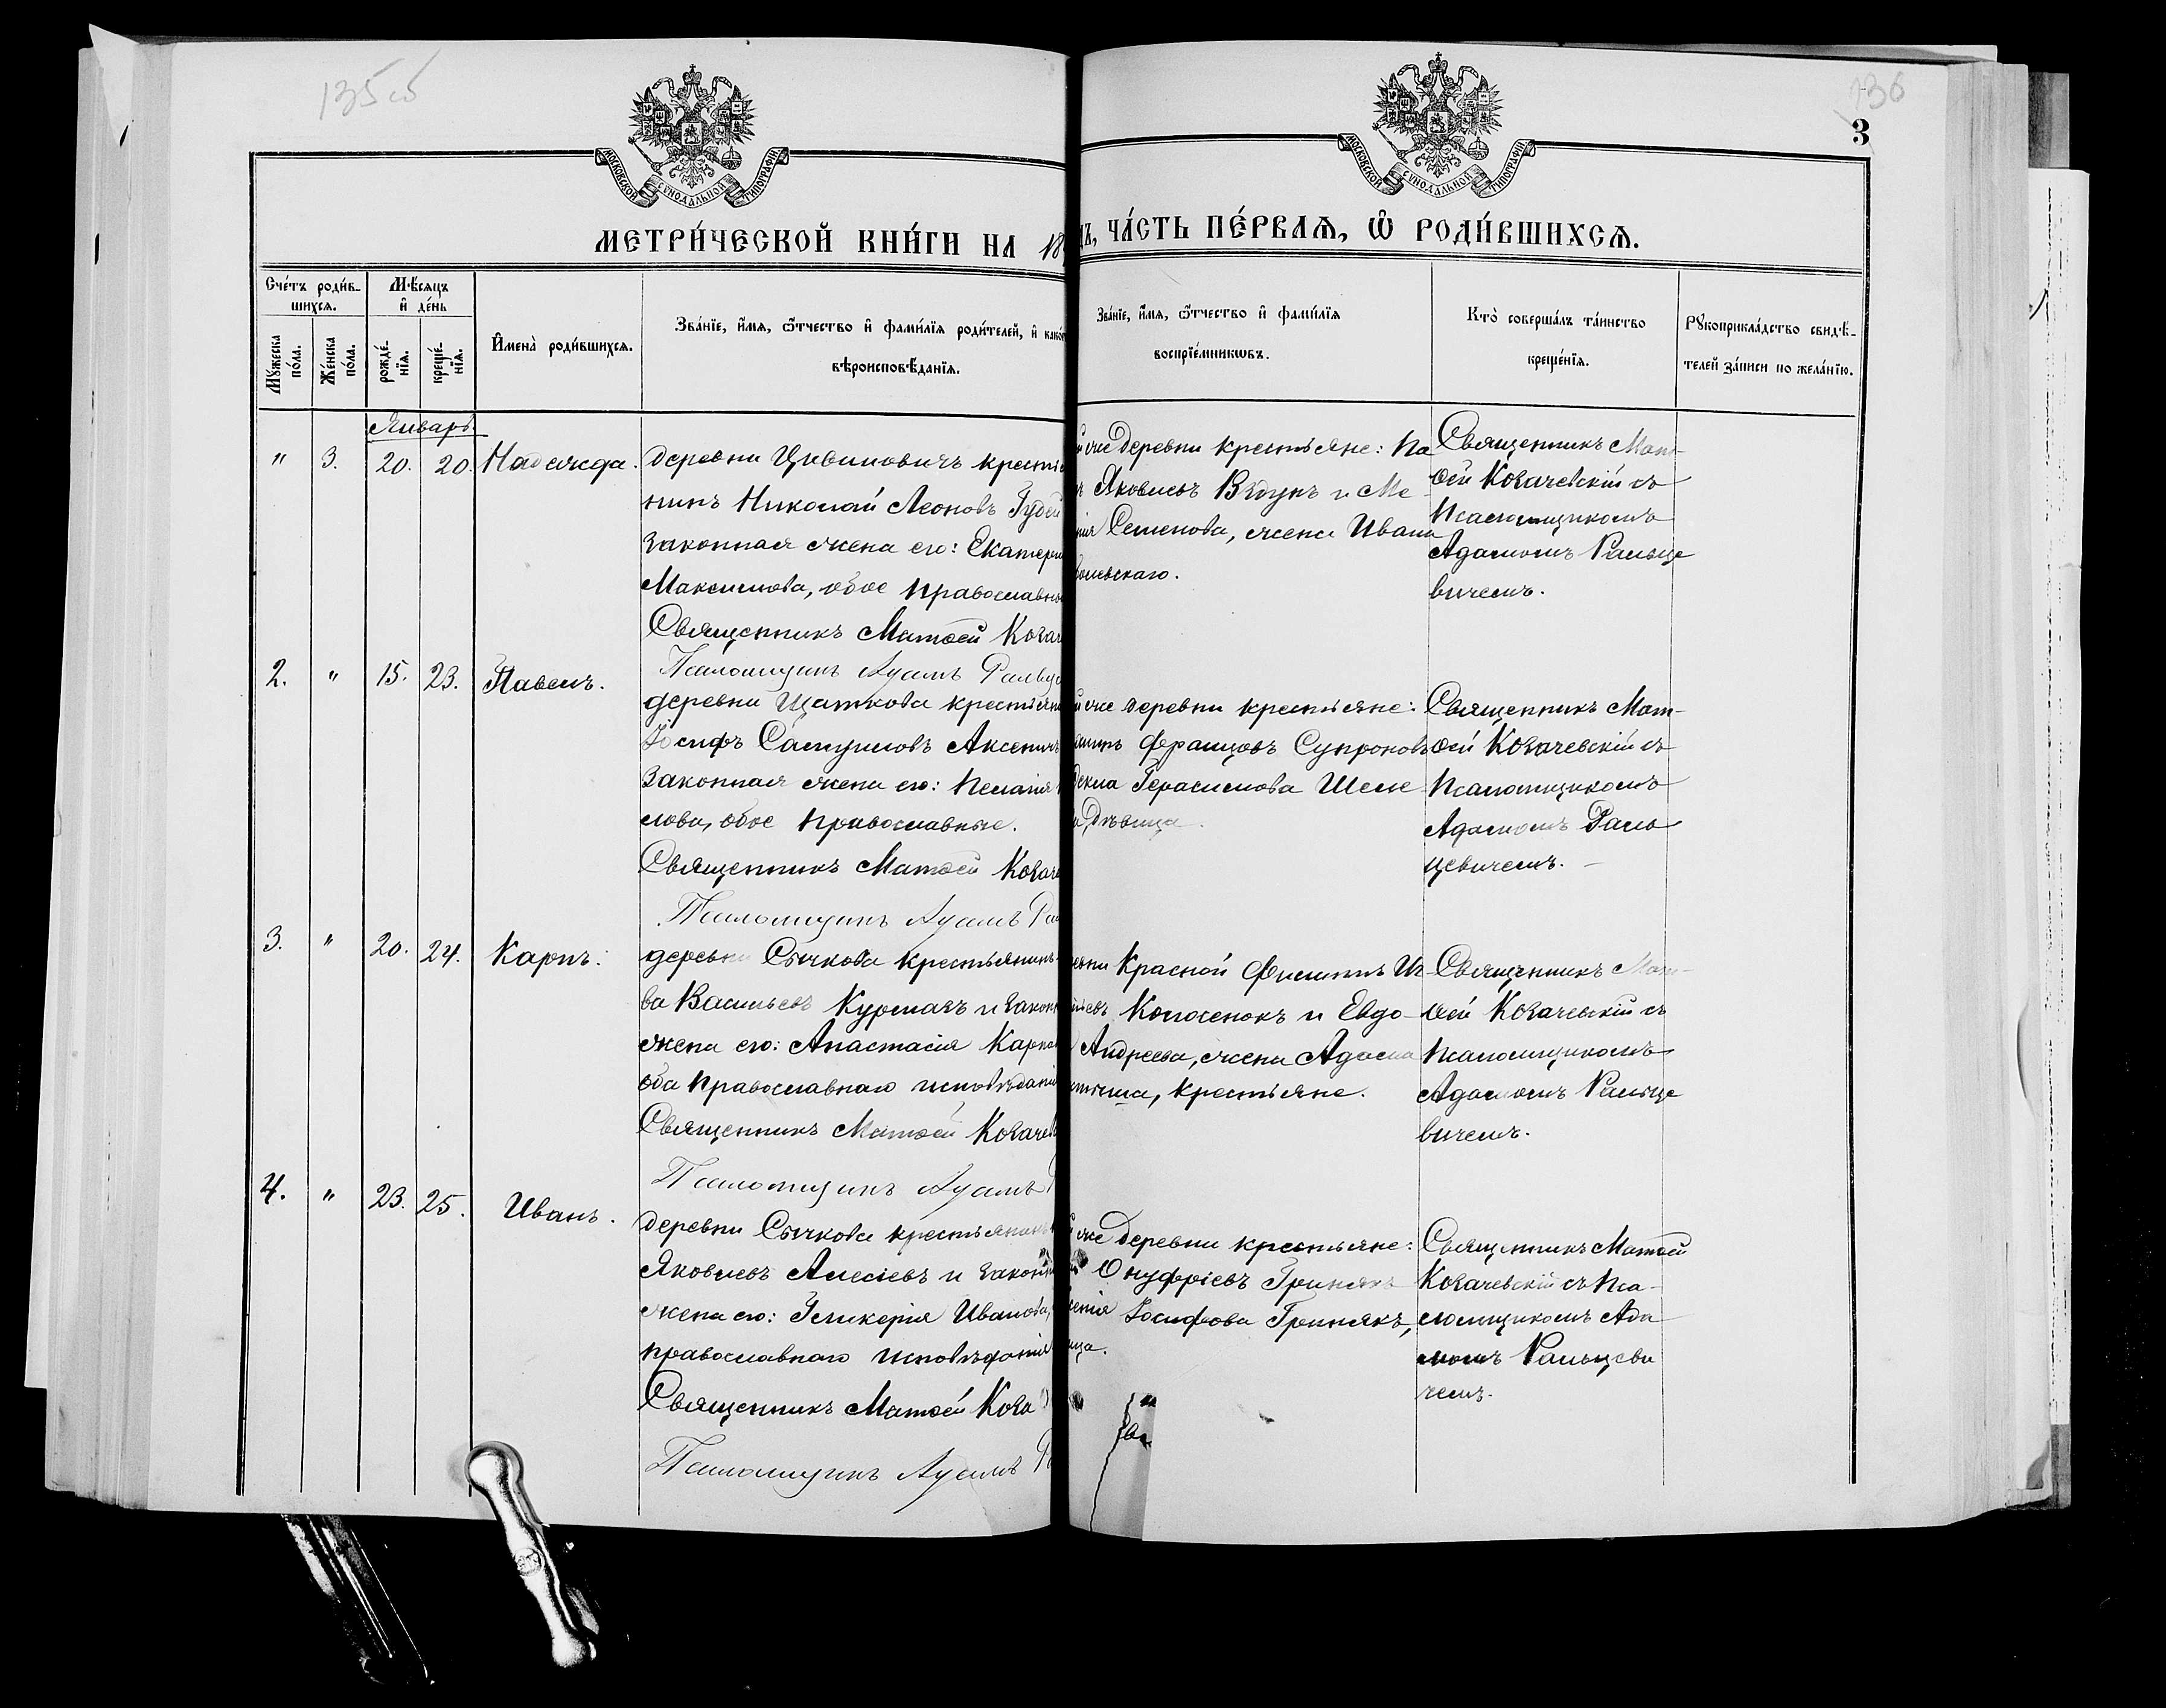 135об
136
3
МОСКОВСКОЙ СѴНОДАЛЬНОЙ ТИПОГРАФІИ
МОСКОВСКОЙ СѴНОДАЛЬНОЙ ТИПОГРАФІИ
МЕТРИ́ЧЕСКОЙ КНИ́ГИ НА 18
ДЪ, ЧА́СТЬ ПЕ́РВАѦ, Ѿ РОДИ́ВШИХСѦ.
Сче́тъ роди́в-
шихсѧ.
Мѣ́сѧцъ
и҆ де́нь
Мꙋ́жеска по́ла.
Же́нска по́ла.
рожде́-нїѧ.
креще́-нїѧ.
И҆мена̀ роди́вшихсѧ.
Зва́нїе, и҆́мѧ, ѻ҆́тчество и҆ фами́лїѧ роди́телей, и҆ како́г
вѣроисповѣ́данїѧ.
Зва́нїе, и҆́мѧ, ѻ҆́тчество и҆ фами́лїѧ
воспрїе́мникωвъ.
Кто̀ соверша́лъ та́инство
креще́нїѧ.
Рꙋкоприкла́дство свидѣ́-
телей за́писи по жела́нїю.
Январь
" 3. 20. 20. Надежда.
деревни Цивиновичъ крестья
нинъ Николай Леоновъ Гудей
законная жена его: Екатери
Максимова, обое православны
Священникъ Матѳей Козач
Псаломщикъ Адамъ Ральц
же деревни крестьяне: Па
Яковлевъ Вѣдунъ и Ме
нія Семенова, жена Ивана
вольскаго.
Священникъ Мат-
ѳей Козачевскій съ
псаломщикомъ
Адамомъ Ральце
вичемъ.
2. " 15. 23. Павелъ.
деревни Щаткова крестьяни
Іосифъ Самуиловъ Аксенич
законная жена его: Пелагія
лова, обое православные.
Священникъ Матѳей Козаче
Псаломщикъ Адамъ Ра
же деревни крестьяне:
Францовъ Супроновъ
Герасимова Шеме
а, дѣвица.
Священникъ Мат-
ѳей Козачевскій съ
псаломщикомъ
Адамомъ Раль
цевичемъ. –
3. " 20. 24. Карпъ.
деревни Сычкова крестьянинъ
ва Васильевъ Курмазъ и закон
жена его: Анастасія Карпо
оба православнаго исповѣдані
Священникъ Матѳей Козачев
Псаломщикъ Адамъ Р
вни Красной Филиппъ Иг-
Колосенокъ и Евдо-
Андреева, жена Адама
крестьяне.
Священникъ Мат-
ѳей Козачевскій съ
псаломщикомъ
Адамомъ Ральце
вичемъ.
4. " 23. 25. Иванъ.
деревни Сычкова крестьянинъ
Яковлевъ Алесіевъ и закон
жена его: Гликерія Иванова,
православнаго исповѣданія
Священникъ Матѳей Коза
Псаломщикъ Адамъ Р
же деревни крестьяне:
Онуфріевъ Гринякъ
енія Іосифова Гринякъ,
ица.
Священникъ Матѳей
Козачевскій съ пса-
ломщикомъ Ада
момъ Ральцеви
чемъ.